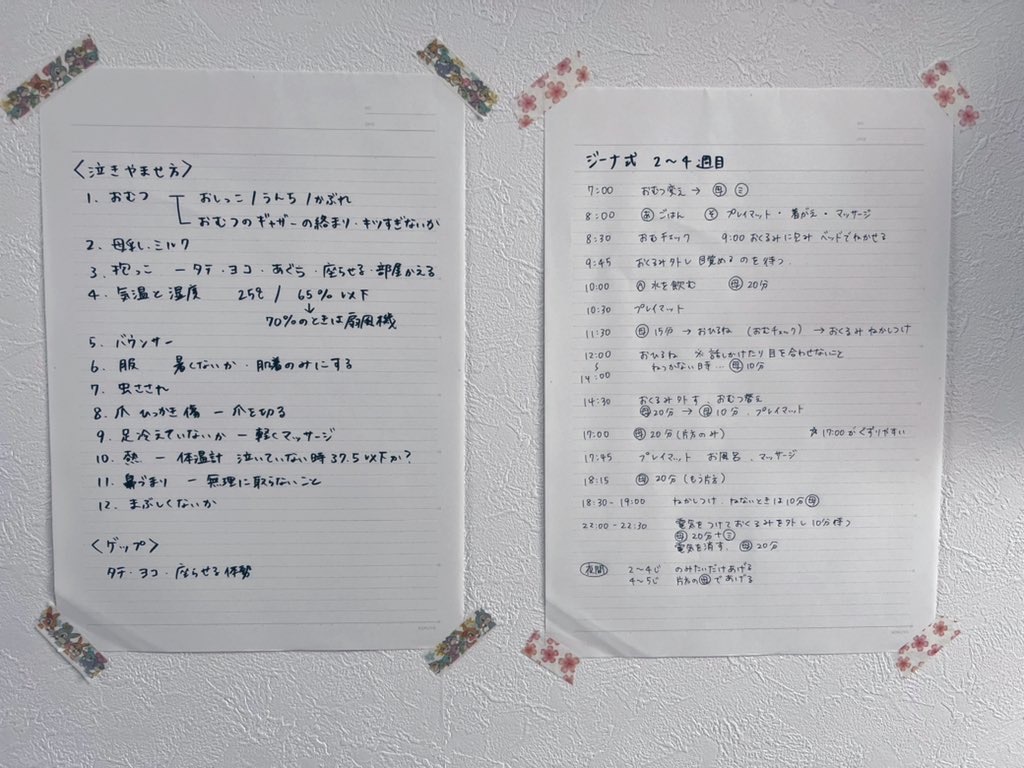 〈泣きやませ方〉
1. おむつ ー おしっこ / うんち / かぶれ
おむつのギャザーの終まり・キツすぎないか
2. 母乳・ミルク
3. 抱っこ ー タテ・ヨコ・あぐら・座らせる・部屋かえる
4. 気温と湿度 25℃ / 65% 以下
↓
70%のときは扇風機
5. バウンサー
6. 服 暑くないか・肌着のみにする
7. 虫さされ
8. 爪 ひっかき傷 ー 爪を切る
9. 足冷えていないか ー 軽くマッサージ
10. 熱 ー 体温計 泣いていない時 37.5以下か?
11. 鼻づまり ー 無理に取らないこと
12. まぶしくないか
〈ゲップ〉
タテ・ヨコ・座らせる体勢
ジーナ式 2〜4週目
7:00 おむつ変え → ㊊
8:00 ごはん プレイマット・着がえ・マッサージ
8:30 おむチェック 9:00 おくるみに包み ベッドでねかせる
9:45 おくるみ外し 目覚めるのを待つ.
10:00 水を飲む 母 20分
10:30 プレイマット
11:30 母 15分 → おひるね (おむチェック) → おくるみ ねかしつけ
12:00 おひるね ※ 話しかけたり目を合わせないこと
〜 ねつかない時… 母 10分
14:00
14:30 おくるみ外す. おむつ替え
母 20分 → 母 10分. プレイマット
17:00 母 20分 (片方のみ) ☆17:00がぐずりやすい
17:45 プレイマット お風呂 . マッサージ
18:15 母 20分 (もう片方)
18:30 - 19:00 ねかしつけ. ねないときは10分 母
22:00 - 22:30 電気をつけておくるみを外し 10分待つ
母 20分 + ミ
電気を消す. 母 20分
夜間 2〜4じ のみたいだけあげる
4〜5じ 片方の母であげる
KOKUYO